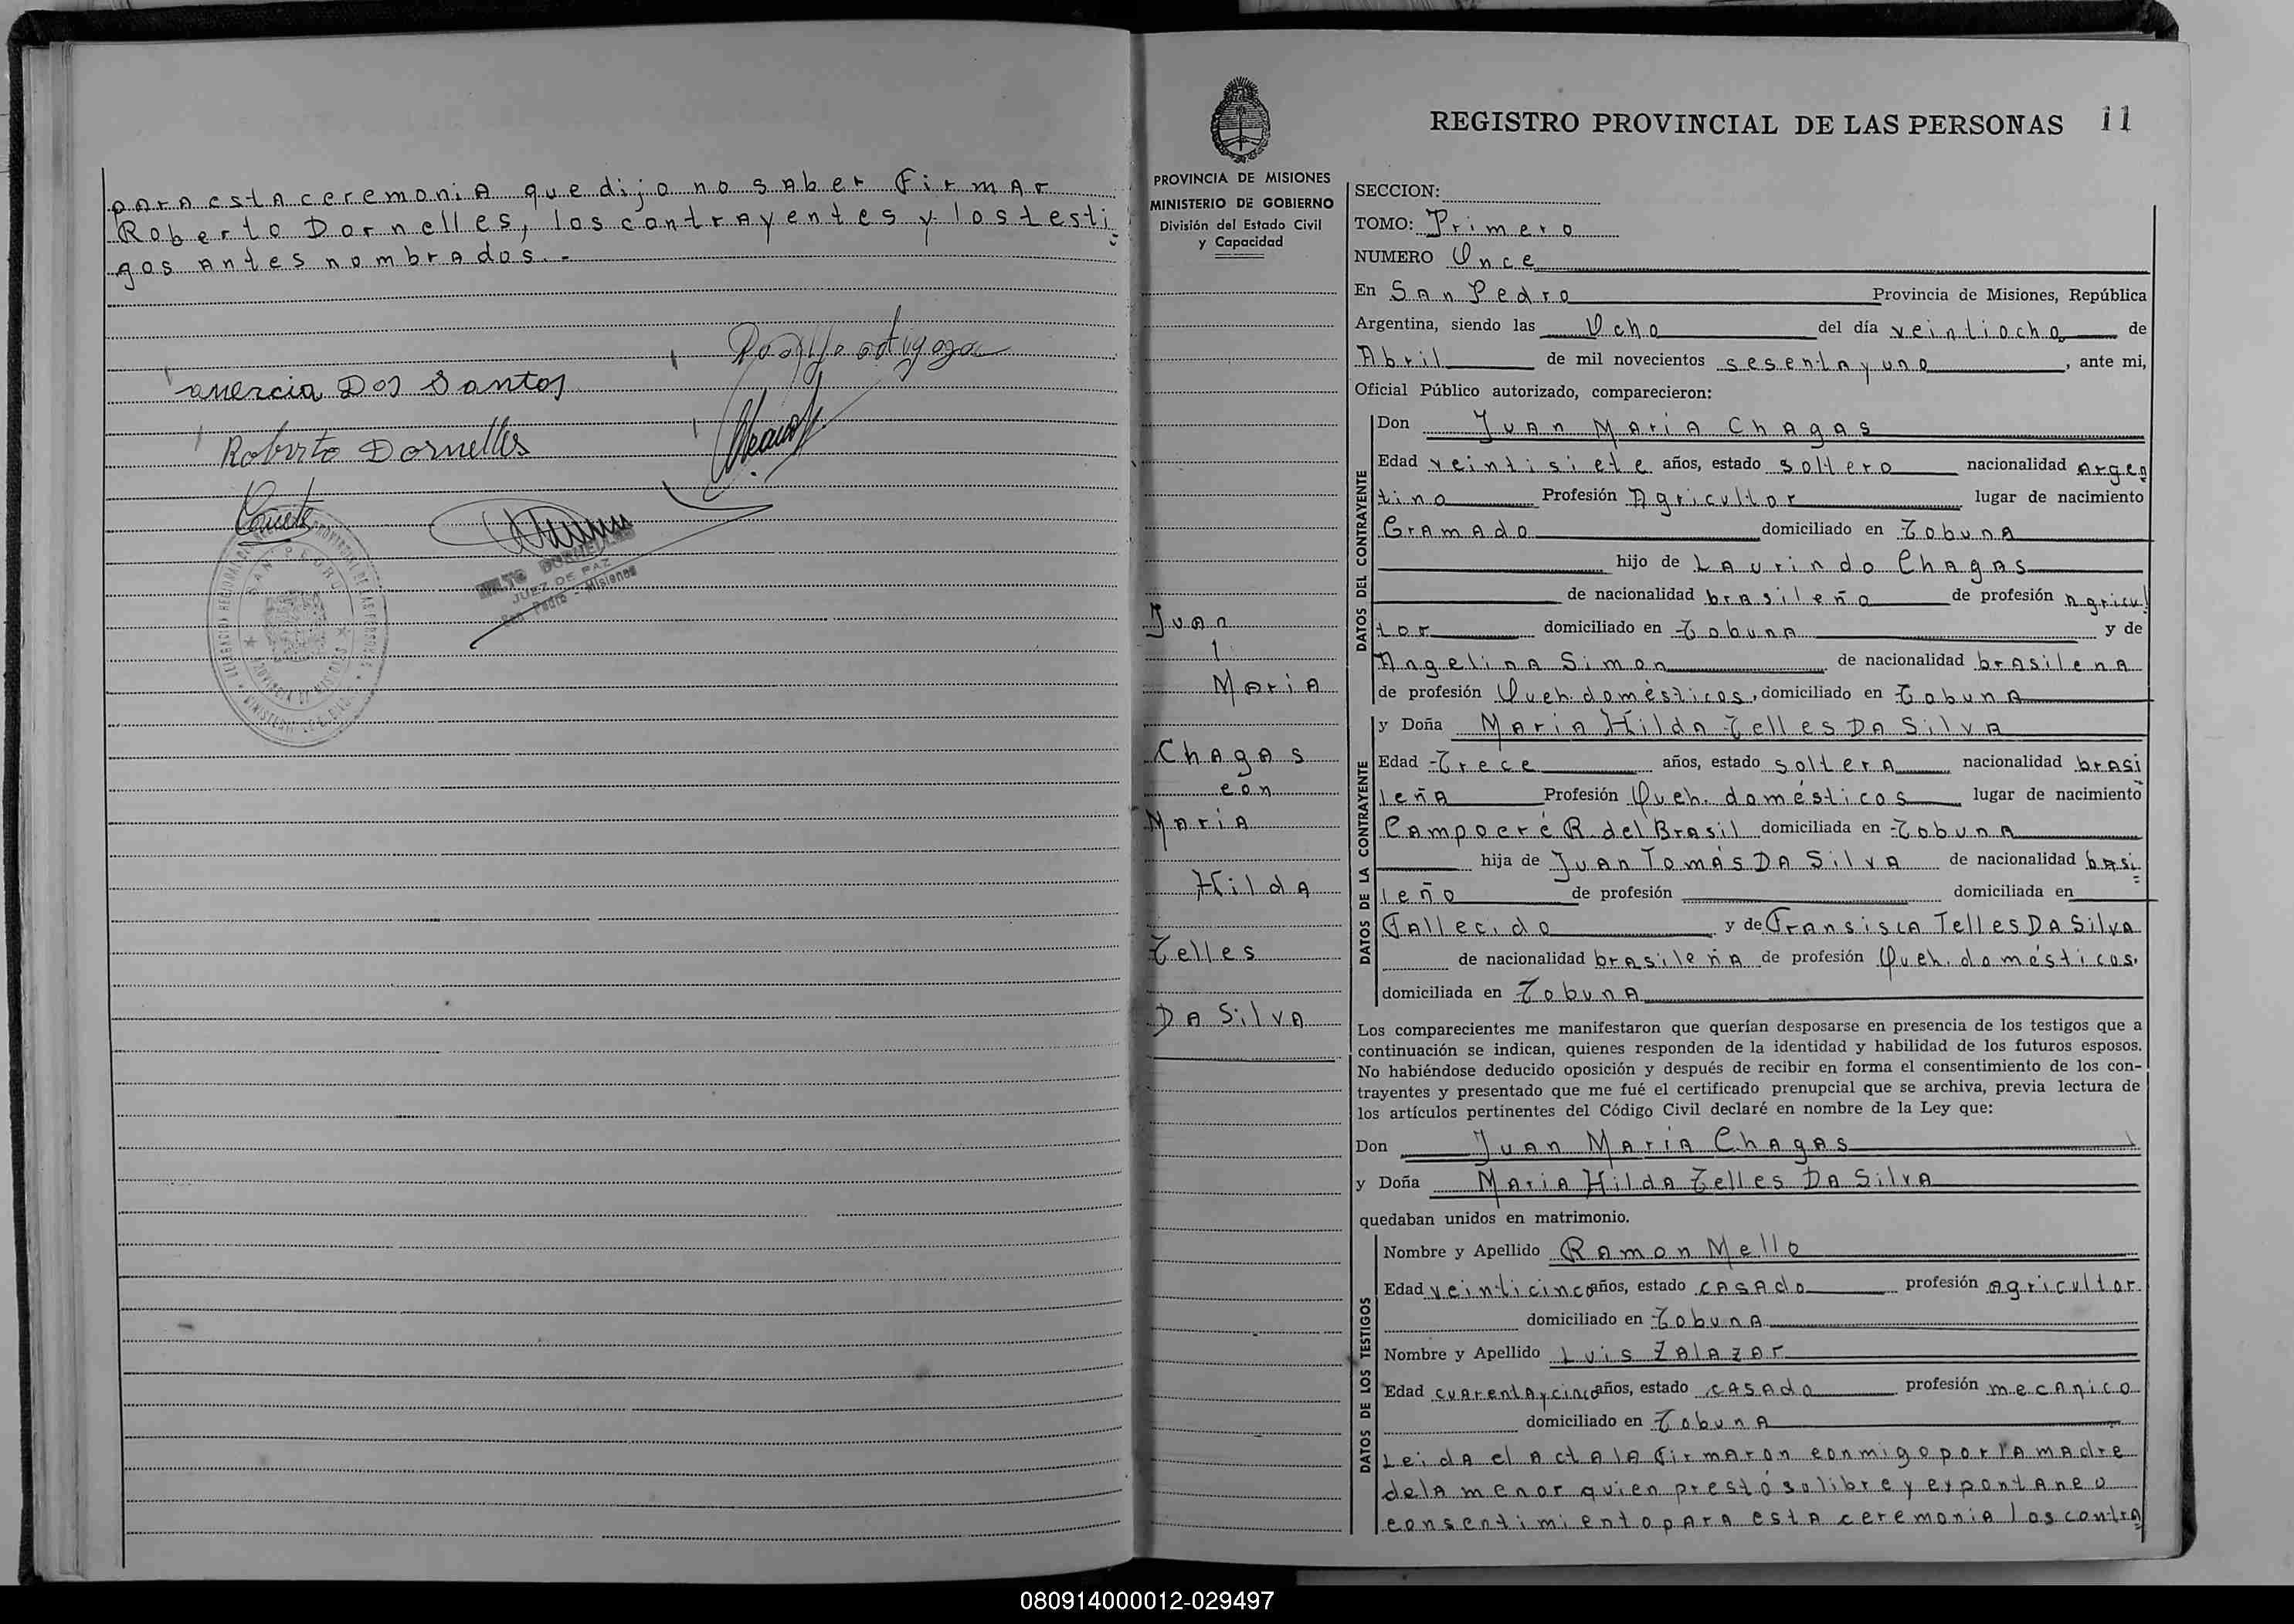 para esta ceremonia que dijo no saber Firmar
Roberto Dornelles, los contrayentes y los testi
gos antes nombrados.-
anercia Dos Santos
Roberto Dornelles
JUEZ DE PAZ
San Pedro - Misiones
REGISTRO PROVINCIAL DE LAS PERSONAS 11
PROVINCIA DE MISIONES
MINISTERIO DE GOBIERNO
División del Estado Civil
y Capacidad
Juan
Maria
Chagas
con
Maria
Hilda
Telles
Da Silva
SECCION:
TOMO: Primero
NUMERO Once
En San Pedro Provincia de Misiones, República
Argentina, siendo las Ocho del día veintiocho de
Abril de mil novecientos sesenta y uno, ante mi,
Oficial Público autorizado, comparecieron:
DATOS DEL CONTRAYENTE
Don Juan Maria Chagas
Edad veintisiete años, estado soltero nacionalidad Argen
tino Profesión Agricultor lugar de nacimiento
Gramado domiciliado en Tobuna
hijo de Laurindo Chagas
de nacionalidad brasileño de profesión Agricul
tor domiciliado en Tobuna y de
Angelina Simon de nacionalidad brasilena
de profesión Queh. domésticos, domiciliado en Tobuna
DATOS DE LA CONTRAYENTE
y Doña Maria Hilda Telles Da Silva
Edad Trece años, estado soltera nacionalidad brasi
leña Profesión Queh. domésticos lugar de nacimiento
Campoeré R. del Brasil domiciliada en Tobuna
hija de Juan Tomás Da Silva de nacionalidad basi
leño de profesión domiciliada en
Fallecido y de Fransisca Telles Da Silva
de nacionalidad brasileña de profesión Queh. domésticos.
domiciliada en Tobuna
Los comparecientes me manifestaron que querían desposarse en presencia de los testigos que a
continuación se indican, quienes responden de la identidad y habilidad de los futuros esposos.
No habiéndose deducido oposición y después de recibir en forma el consentimiento de los con-
trayentes y presentado que me fué el certificado prenupcial que se archiva, previa lectura de
los artículos pertinentes del Código Civil declaré en nombre de la Ley que:
Don Juan Maria Chagas
y Doña Maria Hilda Telles Da Silva
quedaban unidos en matrimonio.
DATOS DE LOS TESTIGOS
Nombre y Apellido Ramon Mello
Edad veinticinco años, estado casado profesión agricultor
domiciliado en Tobuna
Nombre y Apellido Luis Zalazar
Edad cuarenta y cinco años, estado casado profesión mecanico
domiciliado en Tobuna
Leida el acta la Firmaron conmigo por la madre
de la menor quien prestó so libre y expontaneo
consentimiento para esta ceremonia los contra
080914000012-029497